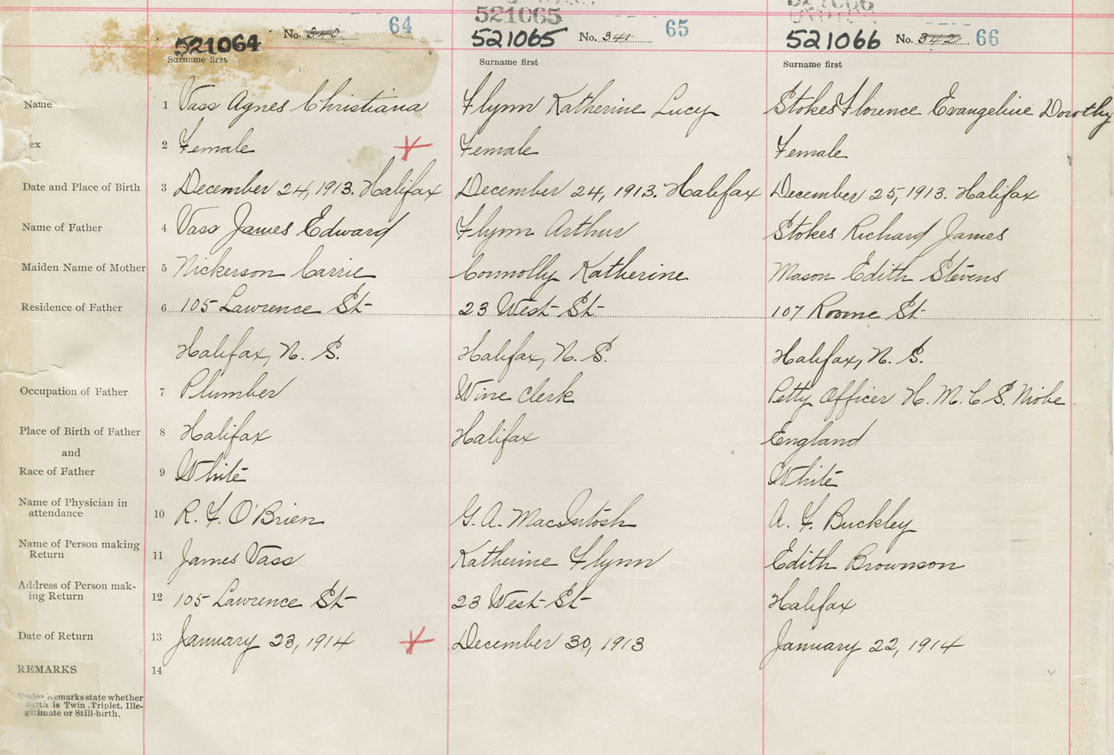 521065
521064 No. 340 64
521065 No. 341 65
521066 No. 342 66
Surname first Surname first Surname first
Name 1 Vass Agnes Christiana Flynn Katherine Lucy Stokes Florence Evangeline Dorothy
ex 2 Female Female Female
Date and Place of Birth 3 December 24, 1913. Halifax December 24, 1913. Halifax December 25, 1913. Halifax
Name of Father 4 Vass James Edward Flynn Arthur Stokes Richard James
Maiden Name of Mother 5 Nickerson Carrie Connolly Katherine Mason Edith Stevens
Residence of Father 6 105 Lawrence St 23 West St 107 Roome St
Halifax, N. S. Halifax, N. S. Halifax, N. S.
Occupation of Father 7 Plumber Wine Clerk Petty Officer H. M. C. S. Niobe
Place of Birth of Father 8 Halifax Halifax England
and
Race of Father 9 White White
Name of Physician in
attendance 10 R. F. O'Brien G. A. MacIntosh A. F. Buckley
Name of Person making
Return 11 James Vass Katherine Flynn Edith Brownson
Address of Person mak-
ing Return 12 105 Lawrence St 23 West St Halifax
Date of Return 13 January 23, 1914 December 30, 1913 January 22, 1914
REMARKS 14
Under Remarks state whether
birth is Twin, Triplet, Ille-
gitimate or Still-birth.